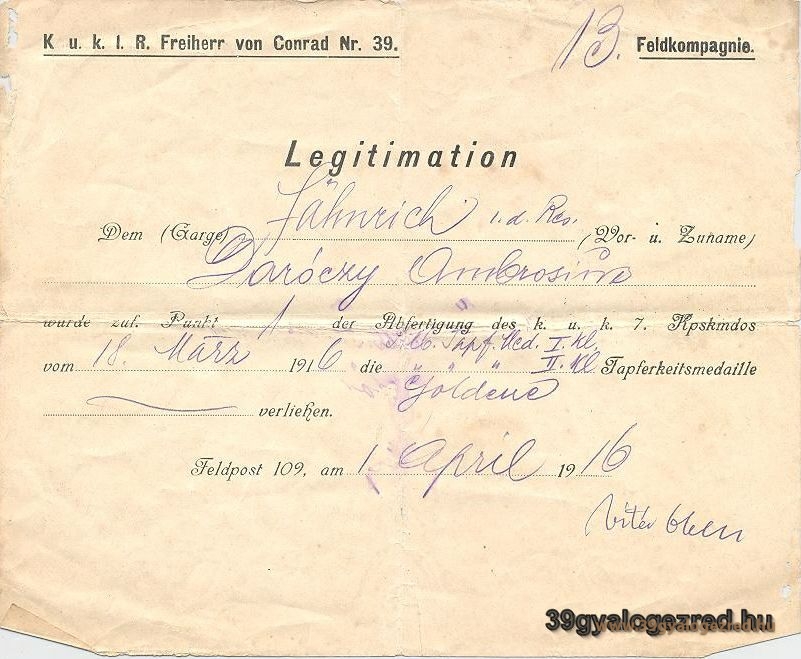 K u. k. I. R. Freiherr von Conrad Nr. 39.
13. Feldkompagnie.
Legitimation
Dem (Carge) Fähnrich i. d. Res. (Vor- u. Zuname)
Daróczy Ambrosius
wurde zuf. Punkt 1 der Abfertigung des k. u. k. 7. Kpskmdos
Silb. Tapf. Med. I. Kl.
vom 18. März 1916 die " " " II. Kl Tapferkeitsmedaille
Goldene
verliehen.
Feldpost 109, am 1. April 1916
39gyalogezred.hu